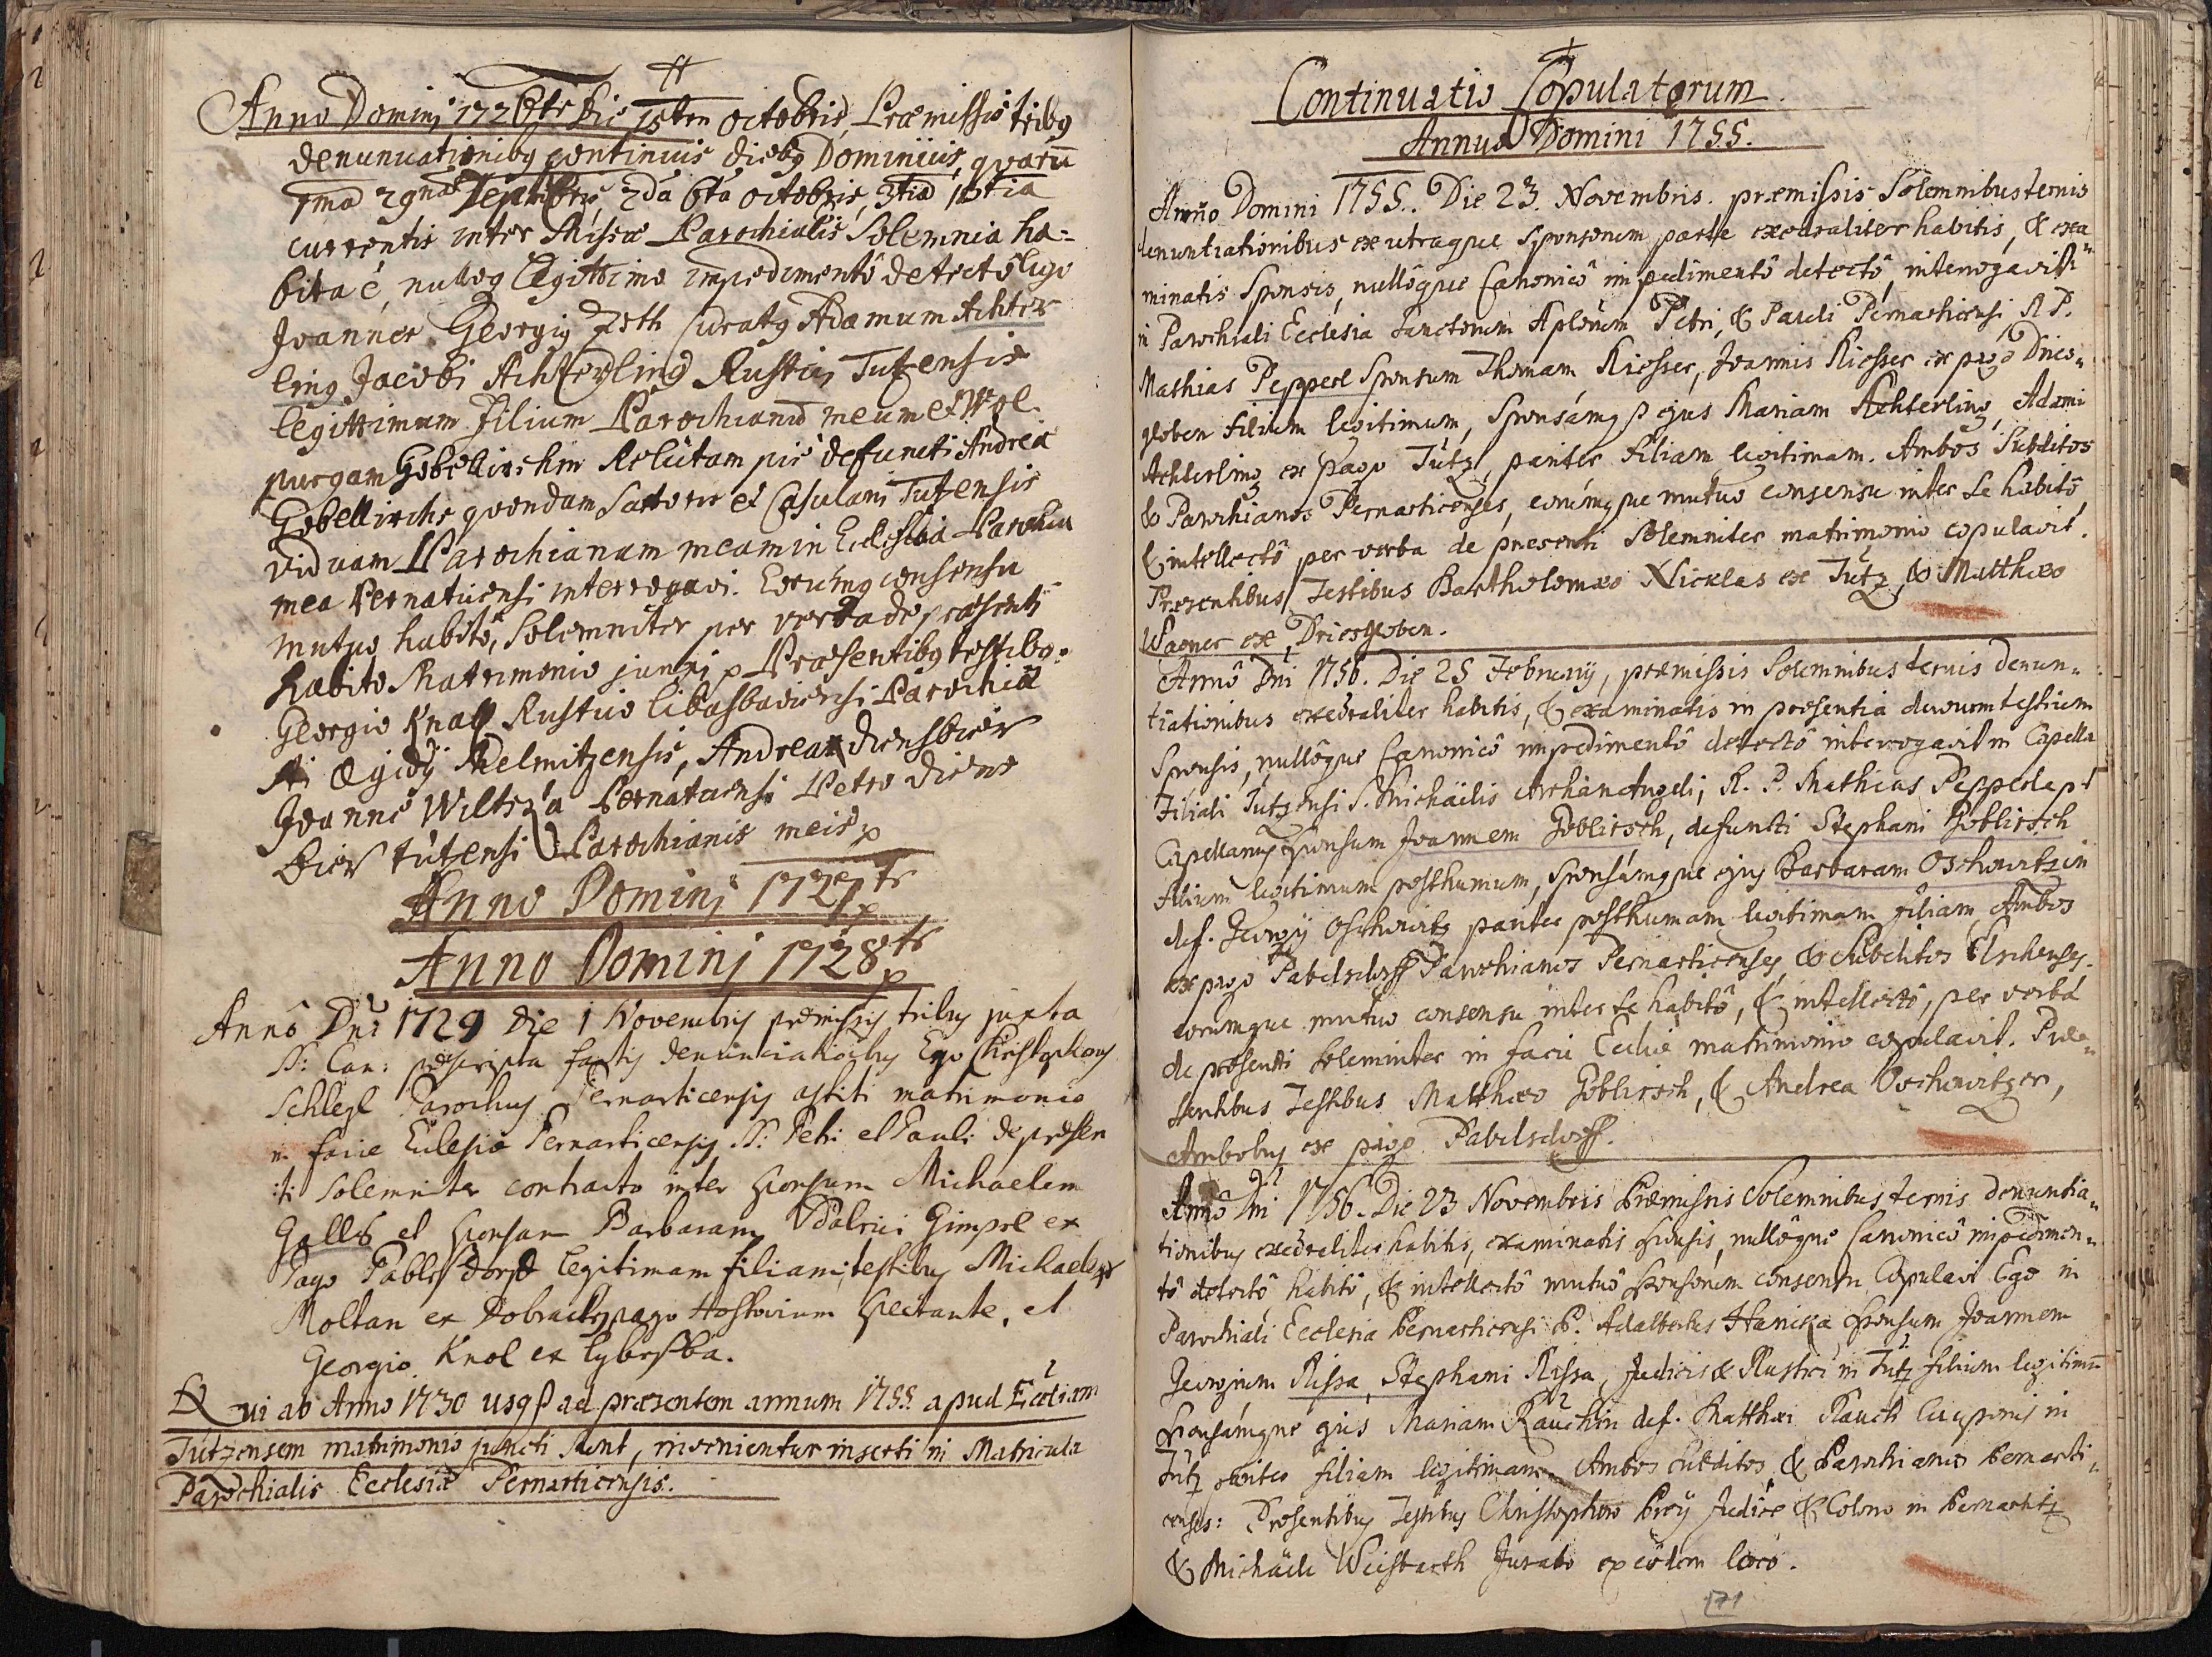 Anno Domini 172 Die 15ten octobris, Præmissis tribq
denunciationibq continuis diebq Dominicis, quarū
1ma 29na Septembris, 2da 6ta octobris, 3tia 13tia
currentis inter Missæ Parochialis Solemnia ha=
bita é, nulloq legittimo impedimentô detectô Ego
Joannes Georgiq Zeth Curatq Adamum Achter
ling Jacobi Achterling Rustici Tutzensis
legittimum Filium Parochianū meum et Wal
purgam Gobellirschin Relictam pié defuncti Andreæ
Gobellirschs quondam Sartoris et Casulani Tutzensis
viduam Parochianam meam in Ecclesia Parochia
mea Pernaticensi interrogavi. Eorúmq consensu
mutuo habitô, Solemniter per verba de præsenti
habito Matrimonio junxi p Præsentibq testibq:
Georgio Knall Rustico libasbaviensi Parochiæ
Sti Ægidÿ Melmitzensis, Andrea diensbier
Joanne Wiltsza Pernaticensi Petro diens
bier tútzensi Parochianis meis p
Anno Dominj 1727 tr p
Anno Dominj 1728 tr p
Annô Dnî 1729 Die 1 Novembris præmissis tribus juxta
SS: Can: præscripta factis denunciationibus Ego Christophorus
Schlegl Parochus Pernarticensis astiti matrimonio
in facie Eclesiæ Pernarticensis SS: Petri et Pauli de præsen
:ti: Solemniter contracto inter sponsum Michaelem
Galls et sponsam Barbaram Udalrici Gimpel ex
Pago Pablsdorff legitimam filiam; testibus Michaele
Moltan ex Dobraken pago Hostovium spectante, et
Georgio Knol ex lybesba.
Qui ab Anno 1730 usqß ad præsentem annum 1755 apud Eccliam
Tutzensem matrimonio juncti sunt, invenientur inserti in Matricula
Parochialis Ecclesiæ Pernarticensis.
Continuatio Copulatorum
Annus Domini 1755.
Anno Domini 1755. Die 23. Novembris. præmissis Solemnibus ternis
denuntiationibus ex utraque Sponsorum parte exedraliter habitis, & exa
minatis Sponsis, nullôque Canonicô impedimentô detectô, interrogavit
in Parochiali Ecclesia Sanctorum Aplorum Petri, & Pauli Pernarticensi R. P.
Mathias Pepperl Sponsum Thomam Riesser, Joannis Riesser ex pago Dries=
globen filium legitimum, Sponsámqß ejus Mariam Achterling, Adami
Achterling ex pago Tútz, pariter filiam legitimam. Ambos Subditos
& Parochianos Pernarticenses, eorúmque mutuo consensu inter se habitô,
& intellectô per verba de presenti Solemniter matrimonio copulavit.
Præsentibus Testibus Bartholomæo Nicklas ex Tútz, & Matthæo
Wagner ex Driesgloben.
Annô Dni 1756. Die 25 Februarij, præmissis Solemnibus ternis denun=
tiationibus exedraliter habitis, & examinatis in præsentia duorum testium
Sponsis, nullôque Canonicô impedimentô detectô interrogavit in Capella
Filiali Tutzensi S. Michaëlis Archangeli, R. P. Mathias Pepperl p.t.
Capellanus Sponsum Joannem Goblirsch, defuncti Stephani Goblirsch
filium legitimum posthumum, Sponsámque ejus Barbaram Oschowitzin
def. Georgij Oschowitz pariter posthumam legitimam filiam, Ambos
ex pago Pabelsdorff Parochianos Pernarticenses, & Subditos Elschenses,
eorumque mutuo consensu inter se habitô, & intellectô, per verba
de præsenti solemniter in facie Eccliæ matrimonio copulavit. Præ=
sentibus Testibus Matthæo Goblirsch, & Andrea Oschowitzer,
Ambobus ex pago Pabelsdorff.
Annô Dni 1756. Die 23 Novembris Præmissis Solemnibus ternis denuntia=
tionibus exedraliter habitis, examinatis sponsis, nullôque Canonicô impedimen=
tô detectô, habitô, & intellectô mutuô sponsorum consensu Copulavi Ego in
Parochiali Ecclesia Pernarticensi P. Adalbertus Hanicka sponsum Joannem
Georgium Rissa, Stephani Rissa, Judicis & Rustici in Tútz filium legitimū
sponsámque ejus Mariam Rauchin def. Matthæi Rauch Cauponis in
Tútz relictæ filiam legitimam Ambos subditos, & Parochianos Pernarti=
censes: Præsentibus Testibus Christophoro Prey Judice & Colono in Pernartitz
& Michaële Weisbarth Jurato ex eôdem locô.
171